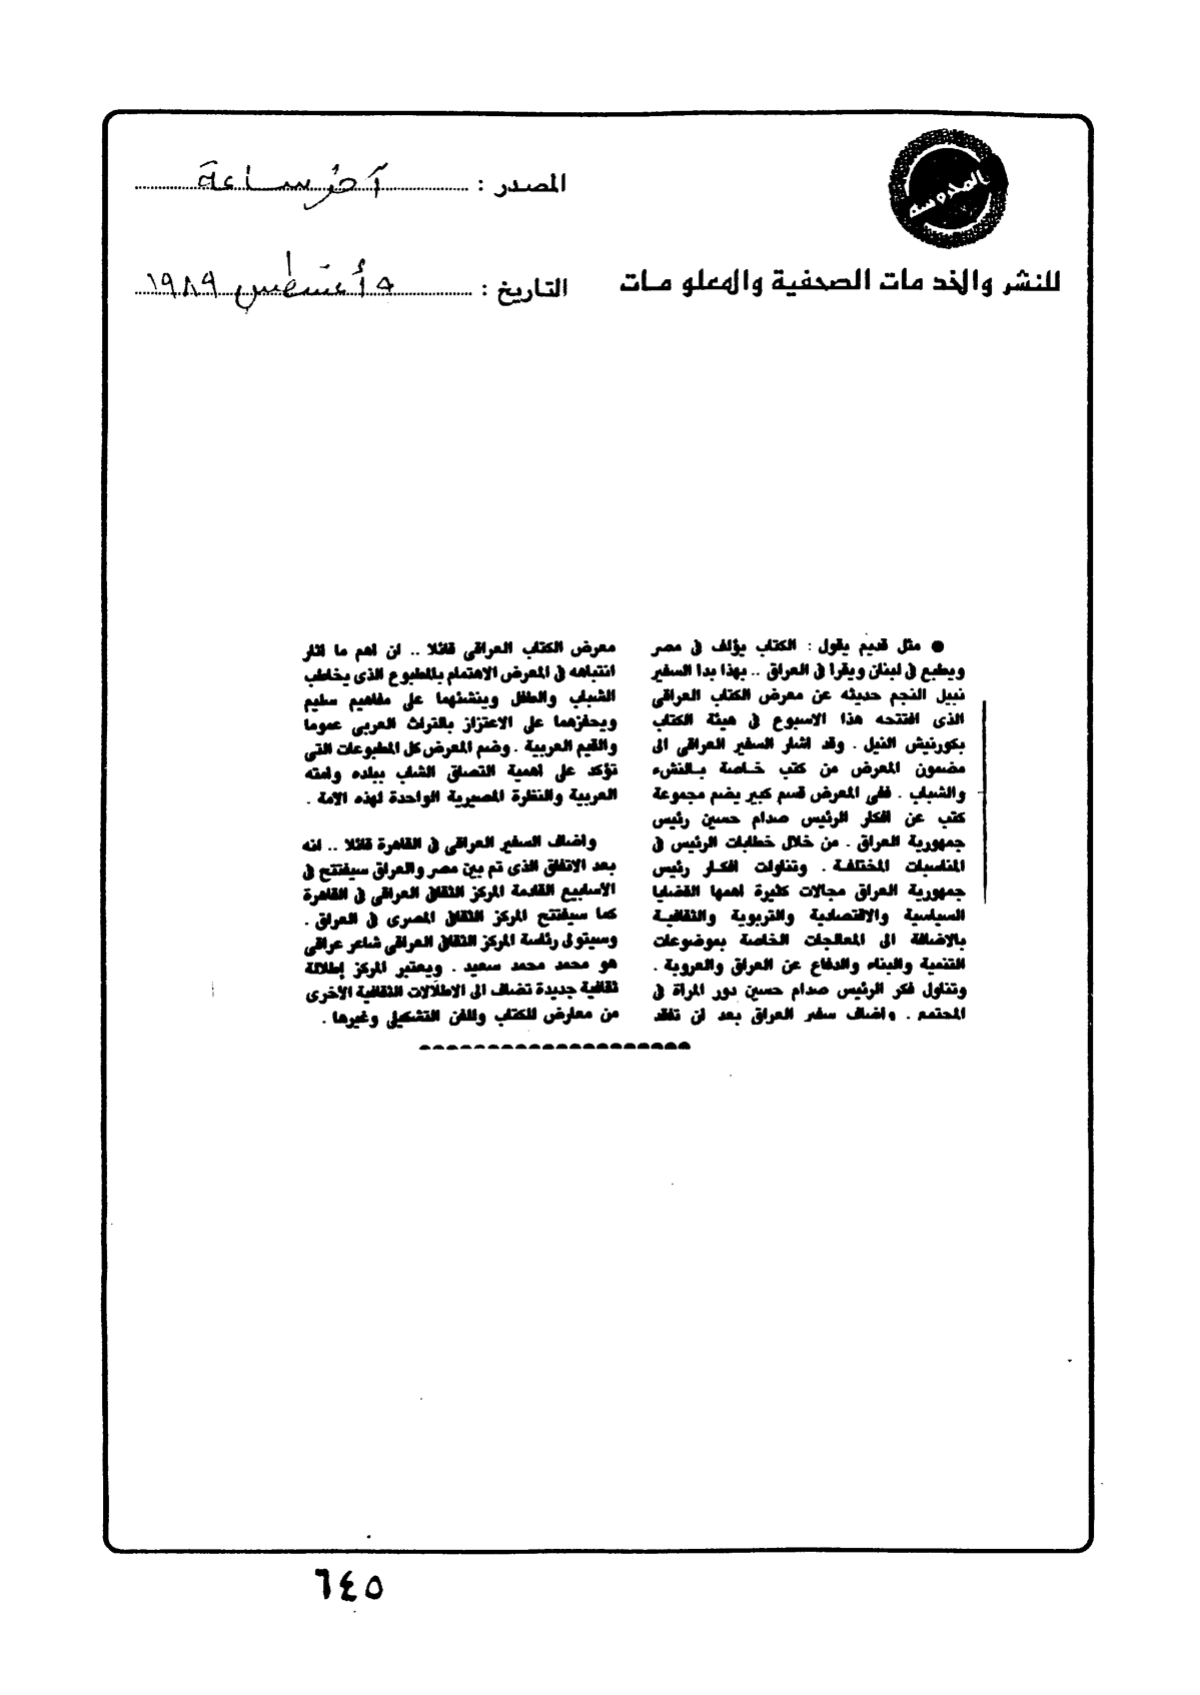 المحروسة
للنشر والخدمات الصحفية والمعلومات
المصدر : آخر ساعة
التاريخ : ٩ أغسطس ١٩٨٩
● مثل قديم يقول : الكتاب يؤلف فى مصر
ويطبع فى لبنان ويقرا فى العراق .. بهذا بدا السفير
نبيل النجم حديثه عن معرض الكتاب العراقى
الذى افتتحه هذا الاسبوع فى هيئة الكتاب
بكورنيش النيل . وقد اشار السفير العراقى الى
مضمون المعرض من كتب خاصة بالنشء
والشباب . ففى المعرض قسم كبير يضم مجموعة
كتب عن افكار الرئيس صدام حسين رئيس
جمهورية العراق . من خلال خطابات الرئيس فى
المناسبات المختلفة . وتناولت افكار رئيس
جمهورية العراق مجالات كثيرة اهمها القضايا
السياسية والاقتصادية والتربوية والثقافية
بالاضافة الى المعالجات الخاصة بموضوعات
التنمية والبناء والدفاع عن العراق والعروبة .
وتناول فكر الرئيس صدام حسين دور المراة فى
المجتمع . واضاف سفير العراق بعد ان تفقد
معرض الكتاب العراقى قائلا .. ان اهم ما اثار
انتباهه فى المعرض الاهتمام بالمطبوع الذى يخاطب
الشباب والطفل وينشئهما على مفاهيم سليم
ويحفزهما على الاعتزاز بالتراث العربى عموما
والقيم العربية . وضم المعرض كل المطبوعات التى
تؤكد على اهمية التصاق الشاب ببلده وامته
العربية والنظرة المصيرية الواحدة لهذه الامة .
واضاف السفير العراقى فى القاهرة قائلا .. انه
بعد الاتفاق الذى تم بين مصر والعراق سيفتتح فى
الاسابيع القادمة المركز الثقافى العراقى فى القاهرة
كما سيفتتح المركز الثقافى المصرى فى العراق .
وسيتولى رئاسة المركز الثقافى العراقى شاعر عراقى
هو محمد محمد سعيد . ويعتبر المركز إطلالة
ثقافية جديدة تضاف الى الاطلالات الثقافية الأخرى
من معارض للكتاب وللفن التشكيلى وغيرها .
٦٤٥